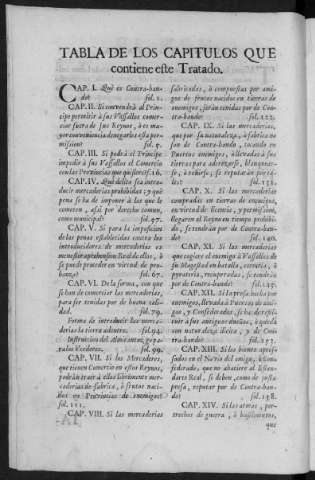 TABLA DE LOS CAPITULOS QUE
contiene este Tratado.
CAP. I. Què es Contra-ban-
do? fol. 1.
CAP. II. Si convendrà al Prin-
cipe permitir à sus Vassallos comer-
ciar fuera de sus Reynos, ò es ma-
yor conveniencia denegarles esta per-
mission? fol. 5.
CAP. III. Si podrà el Principe
impedir à sus Vassallos el Comercio
con las Provincias que quisiere? f. 16.
CAP. IV. Què delito sea intro-
ducir mercaderias prohibidas; y què
pena se ha de imponer à los que le
cometen, assi por derecho comun,
como municipal? fol. 27.
CAP. V. Si para la imposicion
de las penas establecidas contra los
introducidores de mercaderias es
menester aprehension Real de ellas, ò
se puede proceder en virtud de prue-
ba? fol. 67.
CAP. VI. De la forma, con que
se han de comerciar las mercaderias,
para ser tenidas por de buena cali-
dad. fol. 79.
Forma de introducir las merca-
derias la tierra adentro. fol. 94.
Instruccion del Almirantazgo pa-
ra los Veedores. fol. 99.
CAP. VII. Si los Mercaderes,
que tienen Comercio en estos Reynos,
podràn traèr à ellos libremente mer-
caderias de fabrica, ò frutos naci-
dos en Provincias de enemigos?
fol. 111.
CAP. VIII. Si las mercaderias
fabricadas, ò compuestas por ami-
gos de frutos nacidos en tierras de
enemigos, seràn tenidas por de Con-
tra-bando? fol. 122.
CAP. IX. Si las mercaderias,
que por su naturaleza, ò fabrica no
son de Contra-bando, tocando en
Puertos enemigos, ò llevadas à sus
tierras para aderezarse, blanquear-
se, ò teñirse, se reputaràn por ta-
les? fol. 131.
CAP. X. Si las mercaderias
compradas en tierras de enemigos,
en virtud de licencia, y permission,
llegaren al Reyno en tiempo prohibi-
do, se tendràn por de Contra-ban-
do? fol. 140.
CAP. XI. Si las mercaderias
que cogiere el enemigo à Vassallos de
su Magestad en batalla, encuentro, ò
pyraterìa, recuperadas, se tendràn
por de Contra-bando? fol. 145.
CAP. XII. Si la presa hecha por
enemigos, llevada à Puertos de ami-
gos, y Confederados, se ha de resti-
tuir à sus antiguos dueños, aquella
con menos alega dicta, y de Con-
tra-bando? fol. 153.
CAP. XIII. Si los bienes apresa-
dos en el Navio del amigo, ò Confe-
derado, que no abatiere al Estan-
darte Real, se deben, como de justa
presa, reputar por de Contra-ban-
do? fol. 158.
CAP. XIV. Si las armas, per-
trechos de guerra, ò bastimentos,
que